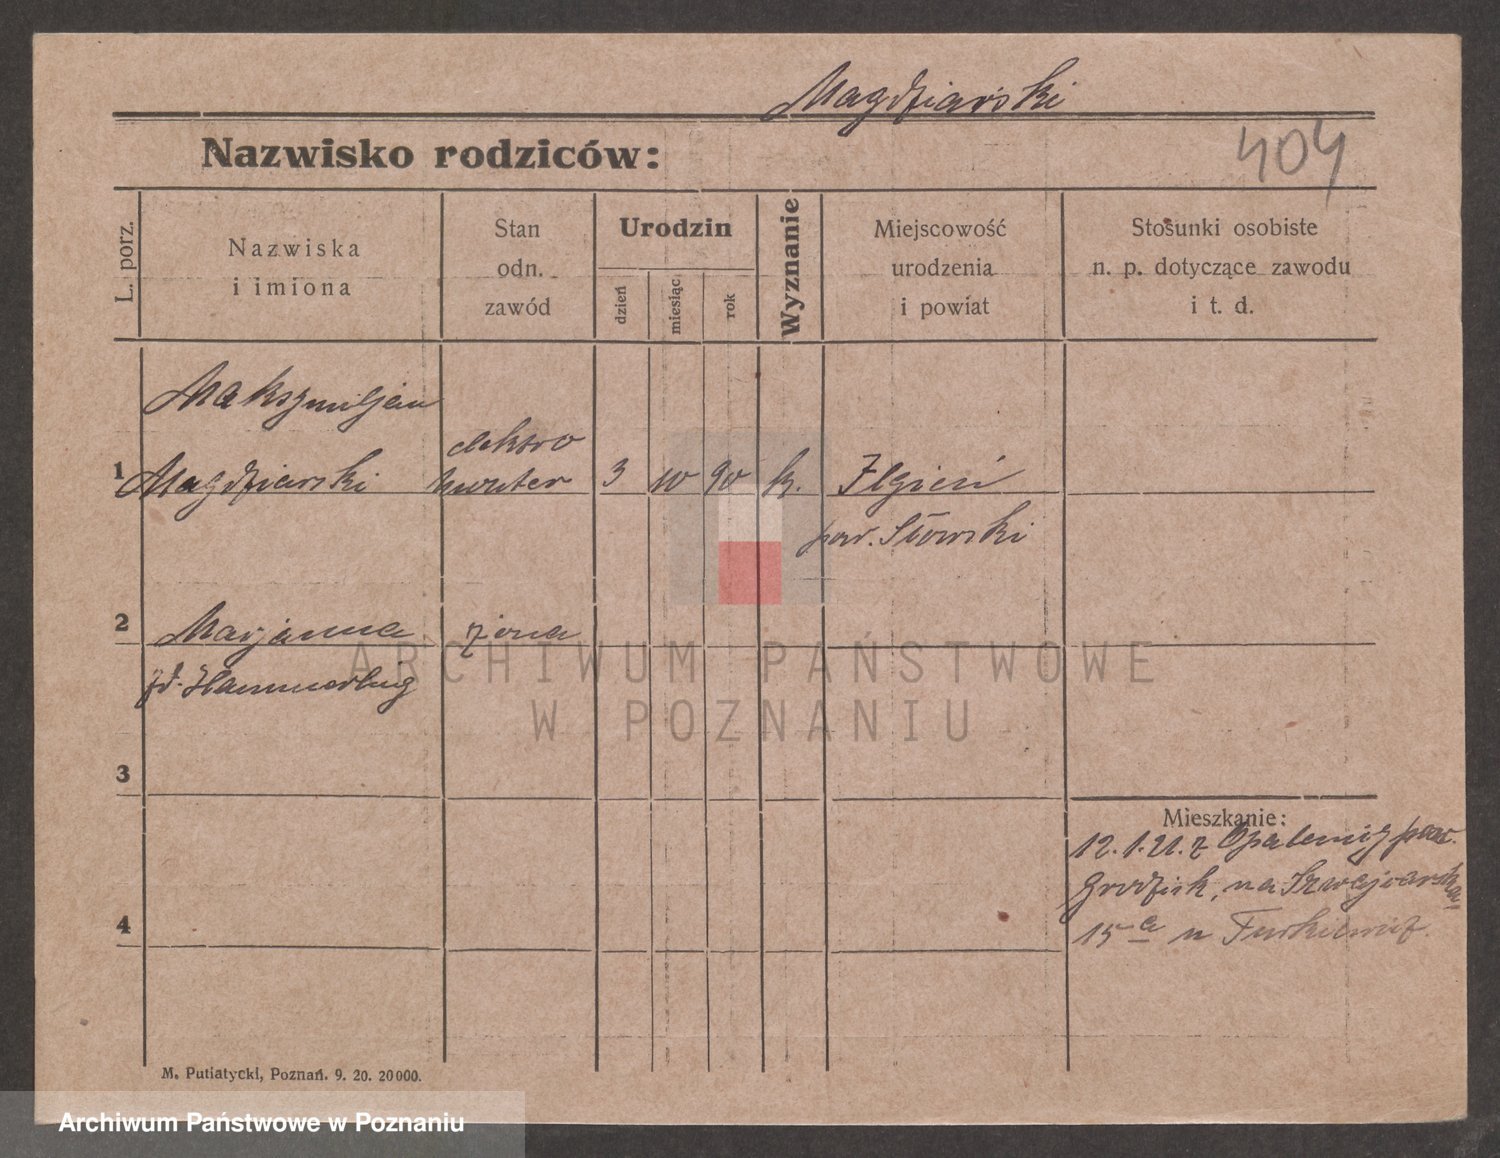 Magdziarski
Nazwisko rodziców:
404
L. porz.
Nazwiska
i imiona
Stan
odn.
zawód
Urodzin
dzień
miesiąc
rok
Wyznanie
Miejscowość
urodzenia
i powiat
Stosunki osobiste
n. p. dotyczące zawodu
i t. d.
Maksymiljan
elektro
1 Magdziarski monter 3 10 90 k.
pow.
2 Marjanna żona
Hammerling
3
Mieszkanie:
12.1.21. z Opalenicy pow.
Grodzisk, na Szwajcarska
4
15 a u
M. Putiatycki, Poznań. 9. 20. 20000.
ARCHIWUM PAŃSTWOWE
W POZNANIU
Archiwum Państwowe w Poznaniu